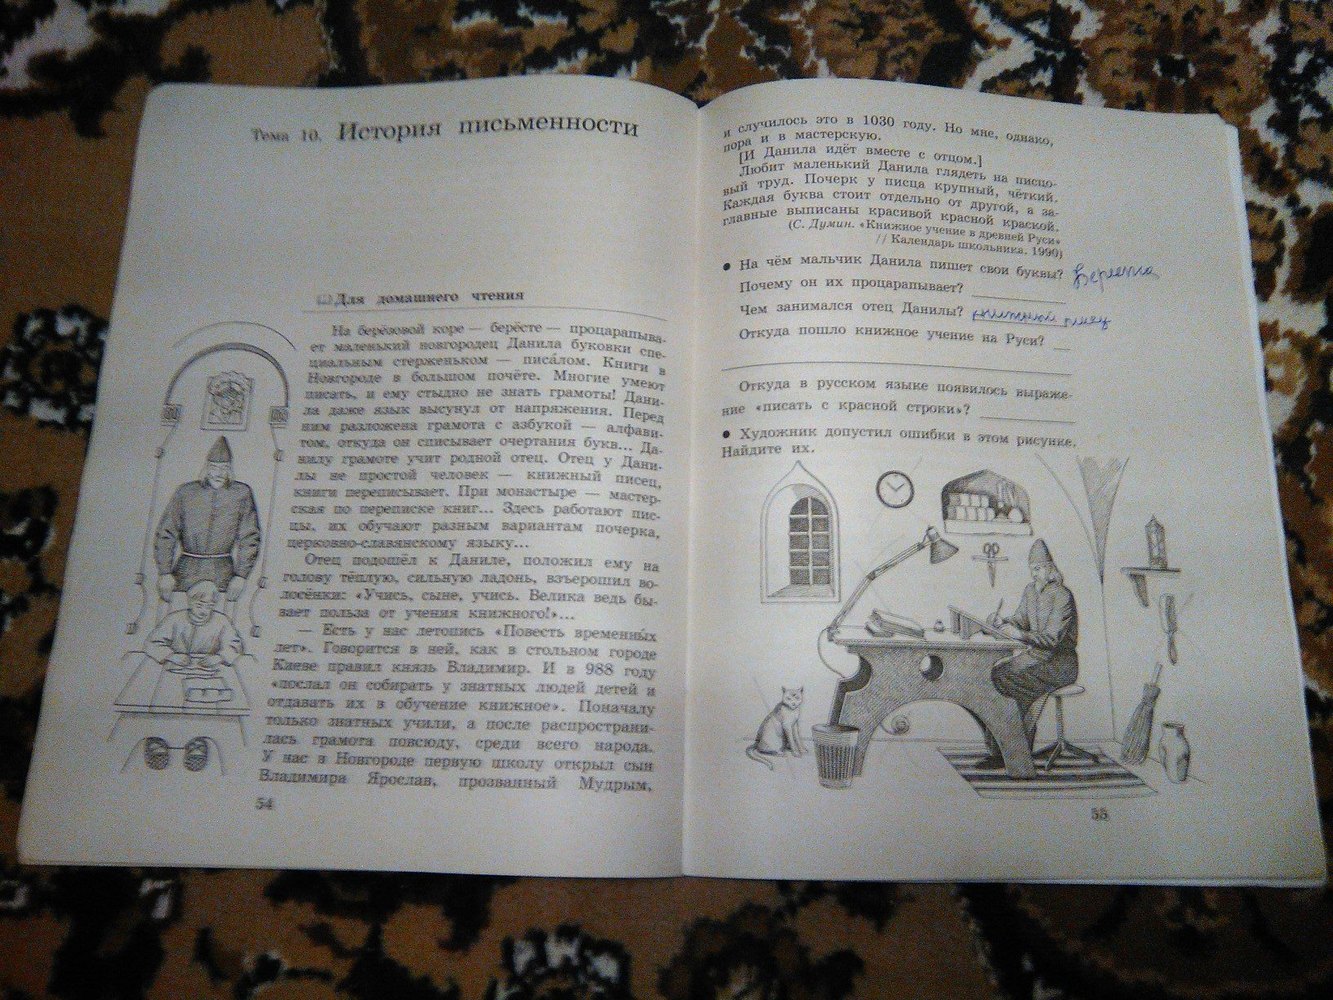 Тема 10. История письменности
Для домашнего чтения
На берёзовой коре — берёсте — процарапыва-
ет маленький новгородец Данила буковки спе-
циальным стерженьком — писа́лом. Книги в
Новгороде в большом почёте. Многие умеют
писать, и ему стыдно не знать грамоты! Дани-
ла даже язык высунул от напряжения. Перед
ним разложена грамота с азбукой — алфави-
том, откуда он списывает очертания букв... Да-
нилу грамоте учит родной отец. Отец у Дани-
лы не простой человек — книжный писец,
книги переписывает. При монастыре — мастер-
ская по переписке книг... Здесь работают пис-
цы, их обучают разным вариантам почерка,
церковно-славянскому языку...
Отец подошёл к Даниле, положил ему на
голову тёплую, сильную ладонь, взъерошил во-
лосёнки: «Учись, сыне, учись. Велика ведь бы-
вает польза от учения книжного!»...
— Есть у нас летопись «Повесть временны́х
лет». Говорится в ней, как в стольном городе
Киеве правил князь Владимир. И в 988 году
«послал он собирать у знатных людей детей и
отдавать их в обучение книжное». Поначалу
только знатных учили, а после распространи-
лась грамота повсюду, среди всего народа.
У нас в Новгороде первую школу открыл сын
Владимира Ярослав, прозванный Мудрым,
54
и случилось это в 1030 году. Но мне, однако,
пора и в мастерскую.
[И Данила идёт вместе с отцом.]
Любит маленький Данила глядеть на писцо-
вый труд. Почерк у писца крупный, чёткий.
Каждая буква стоит отдельно от другой, а за-
главные выписаны красивой красной краской.
(С. Думин. «Книжное учение в древней Руси»
// Календарь школьника. 1990)
● На чём мальчик Данила пишет свои буквы? Береста
Почему он их процарапывает?
Чем занимался отец Данилы? книжной писец
Откуда пошло книжное учение на Руси?
Откуда в русском языке появилось выраже-
ние «писать с красной строки»?
● Художник допустил ошибки в этом рисунке.
Найдите их.
55